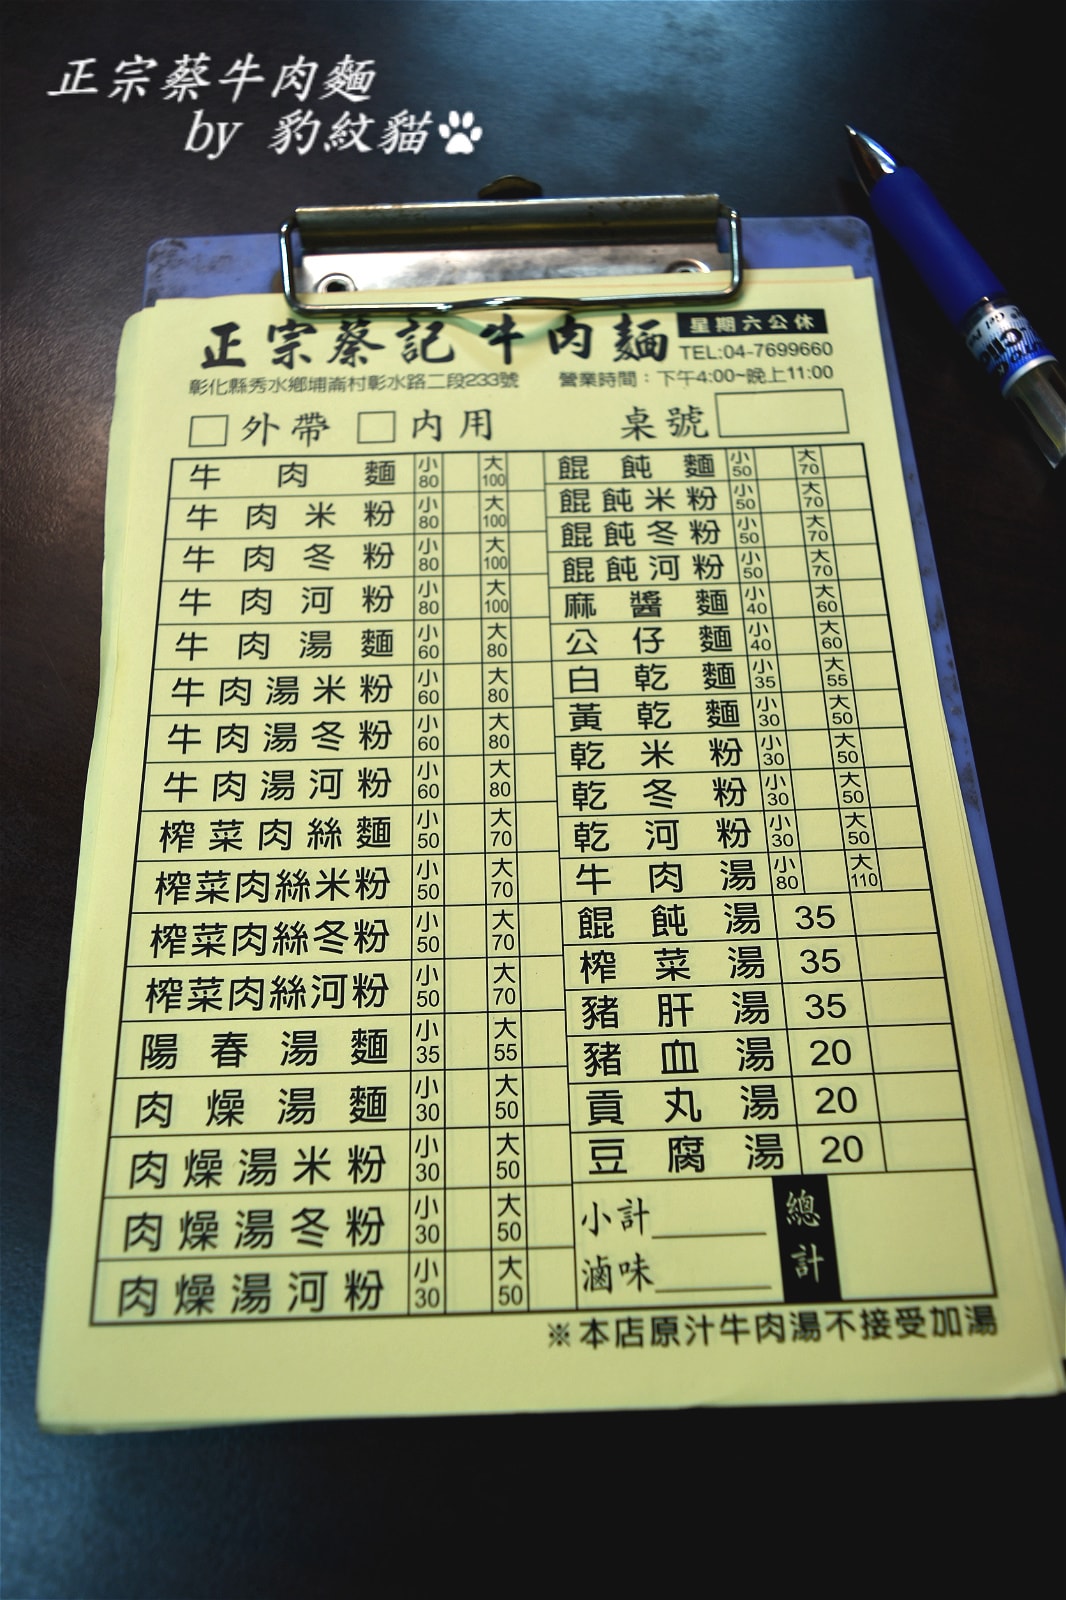 正宗蔡牛肉麵
by 豹紋貓
正宗蔡記牛肉麵 星期六公休
TEL:04-7699660
彰化縣秀水鄉埔崙村彰水路二段233號 營業時間：下午4:00~晚上11:00
外帶 內用 桌號
牛肉麵 小80 大100
牛肉米粉 小80 大100
牛肉冬粉 小80 大100
牛肉河粉 小80 大100
牛肉湯麵 小60 大80
牛肉湯米粉 小60 大80
牛肉湯冬粉 小60 大80
牛肉湯河粉 小60 大80
榨菜肉絲麵 小50 大70
榨菜肉絲米粉 小50 大70
榨菜肉絲冬粉 小50 大70
榨菜肉絲河粉 小50 大70
陽春湯麵 小35 大55
肉燥湯麵 小30 大50
肉燥湯米粉 小30 大50
肉燥湯冬粉 小30 大50
肉燥湯河粉 小30 大50
餛飩麵 小50 大70
餛飩米粉 小50 大70
餛飩冬粉 小50 大70
餛飩河粉 小50 大70
麻醬麵 小40 大60
公仔麵 小40 大60
白乾麵 小35 大55
黃乾麵 小30 大50
乾米粉 小30 大50
乾冬粉 小30 大50
乾河粉 小30 大50
牛肉湯 小80 大110
餛飩湯 35
榨菜湯 35
豬肝湯 35
豬血湯 20
貢丸湯 20
豆腐湯 20
小計
滷味
總計
※本店原汁牛肉湯不接受加湯